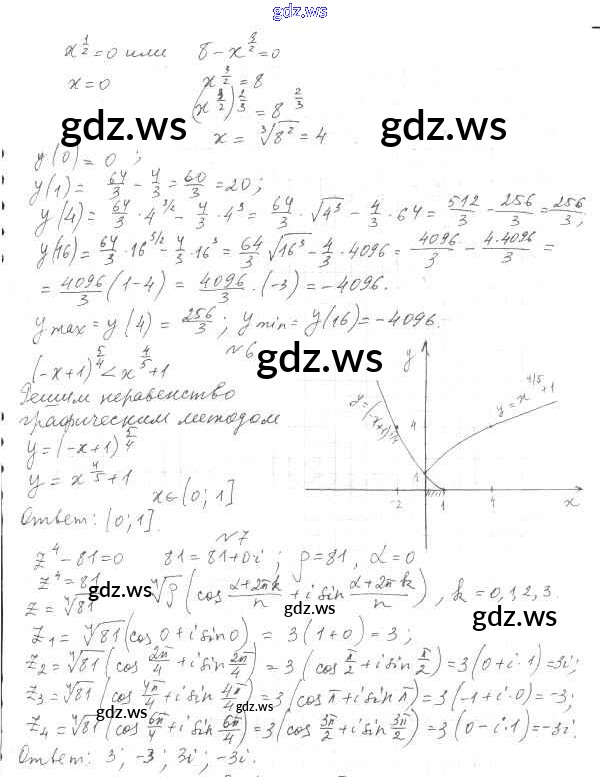 gdz.ws
x^{1/2} = 0 или 8 - x^{3/2} = 0
x = 0 x^{3/2} = 8
(x^{3/2})^{2/3} = 8^{2/3}
x = ∛8² = 4
gdz.ws gdz.ws
y(0) = 0;
y(1) = 64/3 - 4/3 = 60/3 = 20;
y(4) = 64/3 · 4^{3/2} - 4/3 · 4³ = 64/3 · √4³ - 4/3 · 64 = 512/3 - 256/3 = 256/3;
y(16) = 64/3 · 16^{3/2} - 4/3 · 16³ = 64/3 √16³ - 4/3 · 4096 = 4096/3 - 4·4096/3 =
= 4096/3 (1-4) = 4096/3 · (-3) = -4096.
y max = y(4) = 256/3; y min = y(16) = -4096.
№6
gdz.ws
(-x+1)^{5/4} < x^{4/5}+1
Решим неравенство
графическим методом
y = (-x+1)^{5/4}
y = x^{4/5}+1
x ∈ (0; 1]
Ответ: (0; 1].
y
y = (-x+1)^{5/4}
y = x^{4/5}+1
4
1
-2 1 4 x
№7
z⁴ - 81 = 0 81 = 81 + 0i; ρ = 81, α = 0
z⁴ = 81
gdz.ws
z = ⁴√81 ⁿ√ρ (cos (α+2πk)/n + i sin (α+2πk)/n), k = 0, 1, 2, 3.
gdz.ws
gdz.ws
z₁ = ⁴√81 (cos 0 + i sin 0) = 3(1+0) = 3;
z₂ = ⁴√81 (cos 2π/4 + i sin 2π/4) = 3(cos π/2 + i sin π/2) = 3(0 + i·1) = 3i;
z₃ = ⁴√81 (cos 4π/4 + i sin 4π/4) = 3(cos π + i sin π) = 3(-1 + i·0) = -3;
z₄ = ⁴√81 (cos 6π/4 + i sin 6π/4) = 3(cos 3π/2 + i sin 3π/2) = 3(0 - i·1) = -3i.
Ответ: 3; -3; 3i; -3i.
gdz.ws gdz.ws
gdz.ws